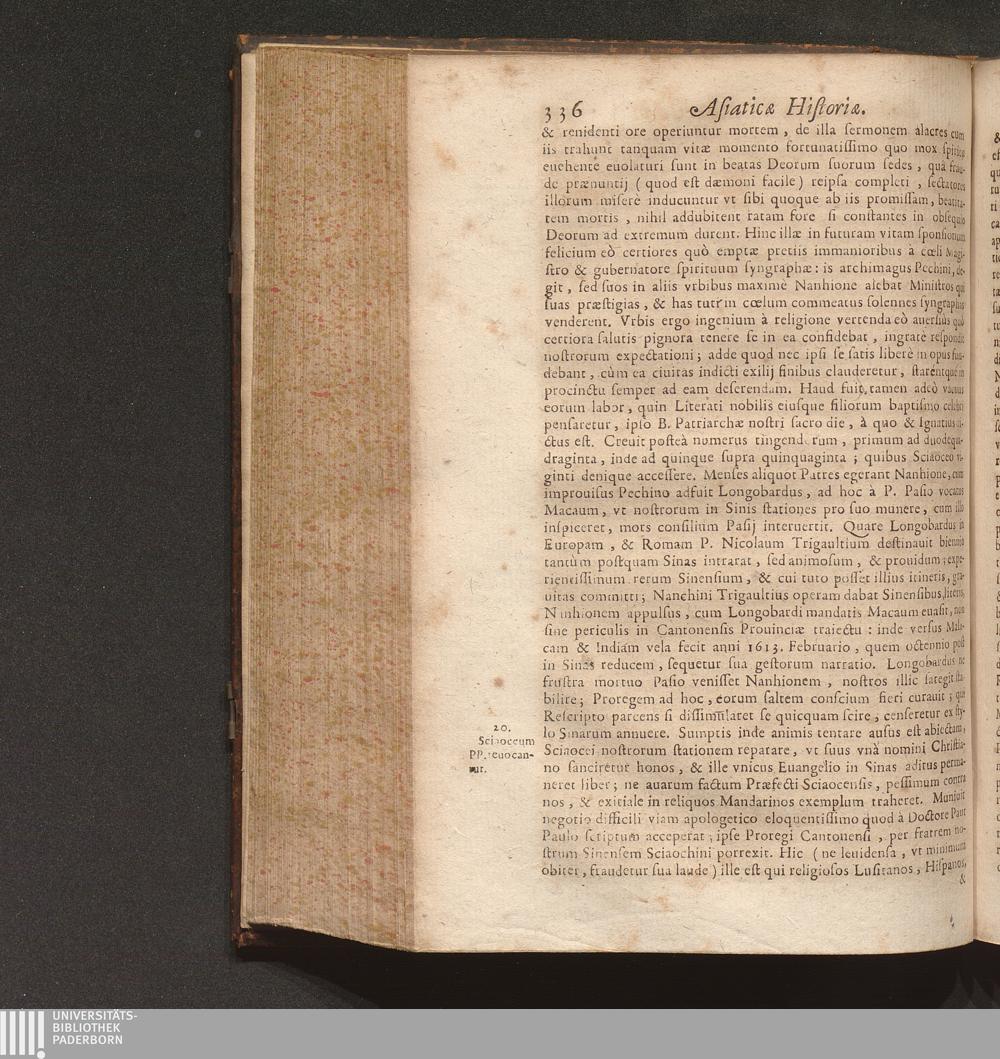 336
Asiaticæ Historiæ.
& renidenti ore operiuntur mortem , de illa sermonem alacres cum
iis trahunt tanquam vitæ momento fortunatissimo quo mox spiritu
euehente euolaturi sunt in beatas Deorum suorum sedes , quâ frau-
de prænuntij ( quod est dæmoni facile ) reipsa completi , sectatores
illorum miserè inducuntur vt sibi quoque ab iis promissam, beatita-
tem mortis , nihil addubitent ratam fore si constantes in obsequio
Deorum ad extremum durent. Hinc illæ in futuram vitam sponsionum
felicium eò certiores quò emptæ pretiis immanioribus à cœli Magi-
stro & gubernatore spirituum syngraphæ : is archimagus Pechini, de-
git , sed suos in aliis vrbibus maximè Nanhione alebat Ministros qui
suas præstigias , & has tutò in cœlum commeatus solennes syngraphas
venderent. Vrbis ergo ingenium à religione vertenda eò auersius quò
certiora salutis pignora tenere se in ea confidebat , ingratè respondit
nostrorum expectationi ; adde quod nec ipsi se satis liberè in opus fun-
debant , cùm ea ciuitas indicti exilij finibus clauderetur , starentque in
procinctu semper ad eam deserendam. Haud fuit tamen adeò vacuus
eorum labor , quin Literati nobilis eiusque filiorum baptismo celebri
pensaretur , ipso B. Patriarchæ nostri sacro die , à quo & Ignatius di-
ctus est. Creuit posteà numerus tingendorum , primum ad duodequa-
draginta , inde ad quinque supra quinquaginta ; quibus Sciaoceo vi-
ginti denique accessere. Menses aliquot Patres egerant Nanhione, cum
improuisus Pechino adfuit Longobardus , ad hoc à P. Pasio vocatus
Macaum , vt nostrorum in Sinis stationes pro suo munere , cum illo
inspiceret , mors consilium Pasij interuertit. Quare Longobardus in
Europam , & Romam P. Nicolaum Trigaultium destinauit biennio
tantùm postquam Sinas intrarat , sed animosum , & prouidum ; expe-
rientissimum rerum Sinensium , & cui tuto posset illius itineris, gra-
uitas committi ; Nanchini Trigaultius operam dabat Sinensibus, literis,
Nanhionem appulsus , cum Longobardi mandatis Macaum euasit, non
sine periculis in Cantonensis Prouinciæ traiectu : inde versus Mala-
cam & Indiam vela fecit anni 1613. Februario , quem octennio post
in Sinas reducem , sequetur sua gestorum narratio. Longobardus ne
frustra mortuo Pasio venisset Nanhionem , nostros illic sategit sta-
bilire ; Proregem ad hoc , eorum saltem conscium fieri curauit ; qui
Rescripto parcens si dissimularet se quicquam scire , censeretur ex sty-
lo Sinarum annuere. Sumptis inde animis tentare ausus est abiectam,
Sciaocei nostrorum stationem reparare , vt suus vnà nomini Christia-
no sanciretur honos , & ille vnicus Euangelio in Sinas aditus perma-
neret liber ; ne auarum factum Præfecti Sciaocensis , pessimum contra
nos , & exitiale in reliquos Mandarinos exemplum traheret. Muniuit
negotio difficili viam apologetico eloquentissimo quod à Doctore
Paulo scriptum acceperat ; ipse Proregi Cantonensi , per fratrem no-
strum Sinensem Sciaochini porrexit. Hic ( ne leuidensa , vt minimum
obiter , fraudetur sua laude ) ille est qui religiosos Lusitanos , Hispanos,
&
20.
Sciaoceum
PP. reuocan-
tur.
UNIVERSITÄTS-
BIBLIOTHEK
PADERBORN